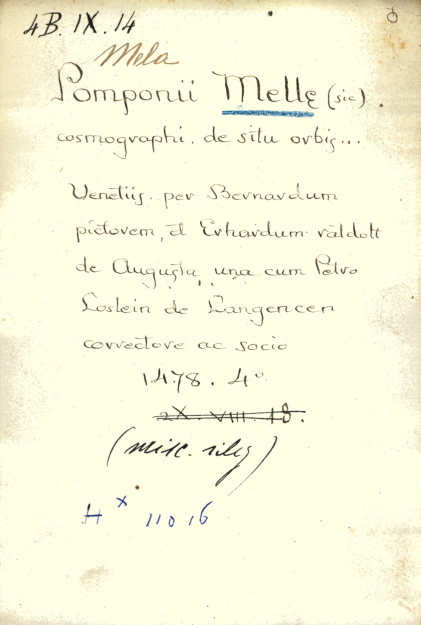 4B. IX. 14
Mela
Pomponii Mellę (sic).
cosmographi. de situ orbis...
Venetiis. per Bernardum
pictorem, et Erhardum ratdolt
de Augusta una cum Petro
Loslein de Langencen
correctore ac socio
1478. 4º
2X. VIII. 18.
(misc. rileg)
H x 11016